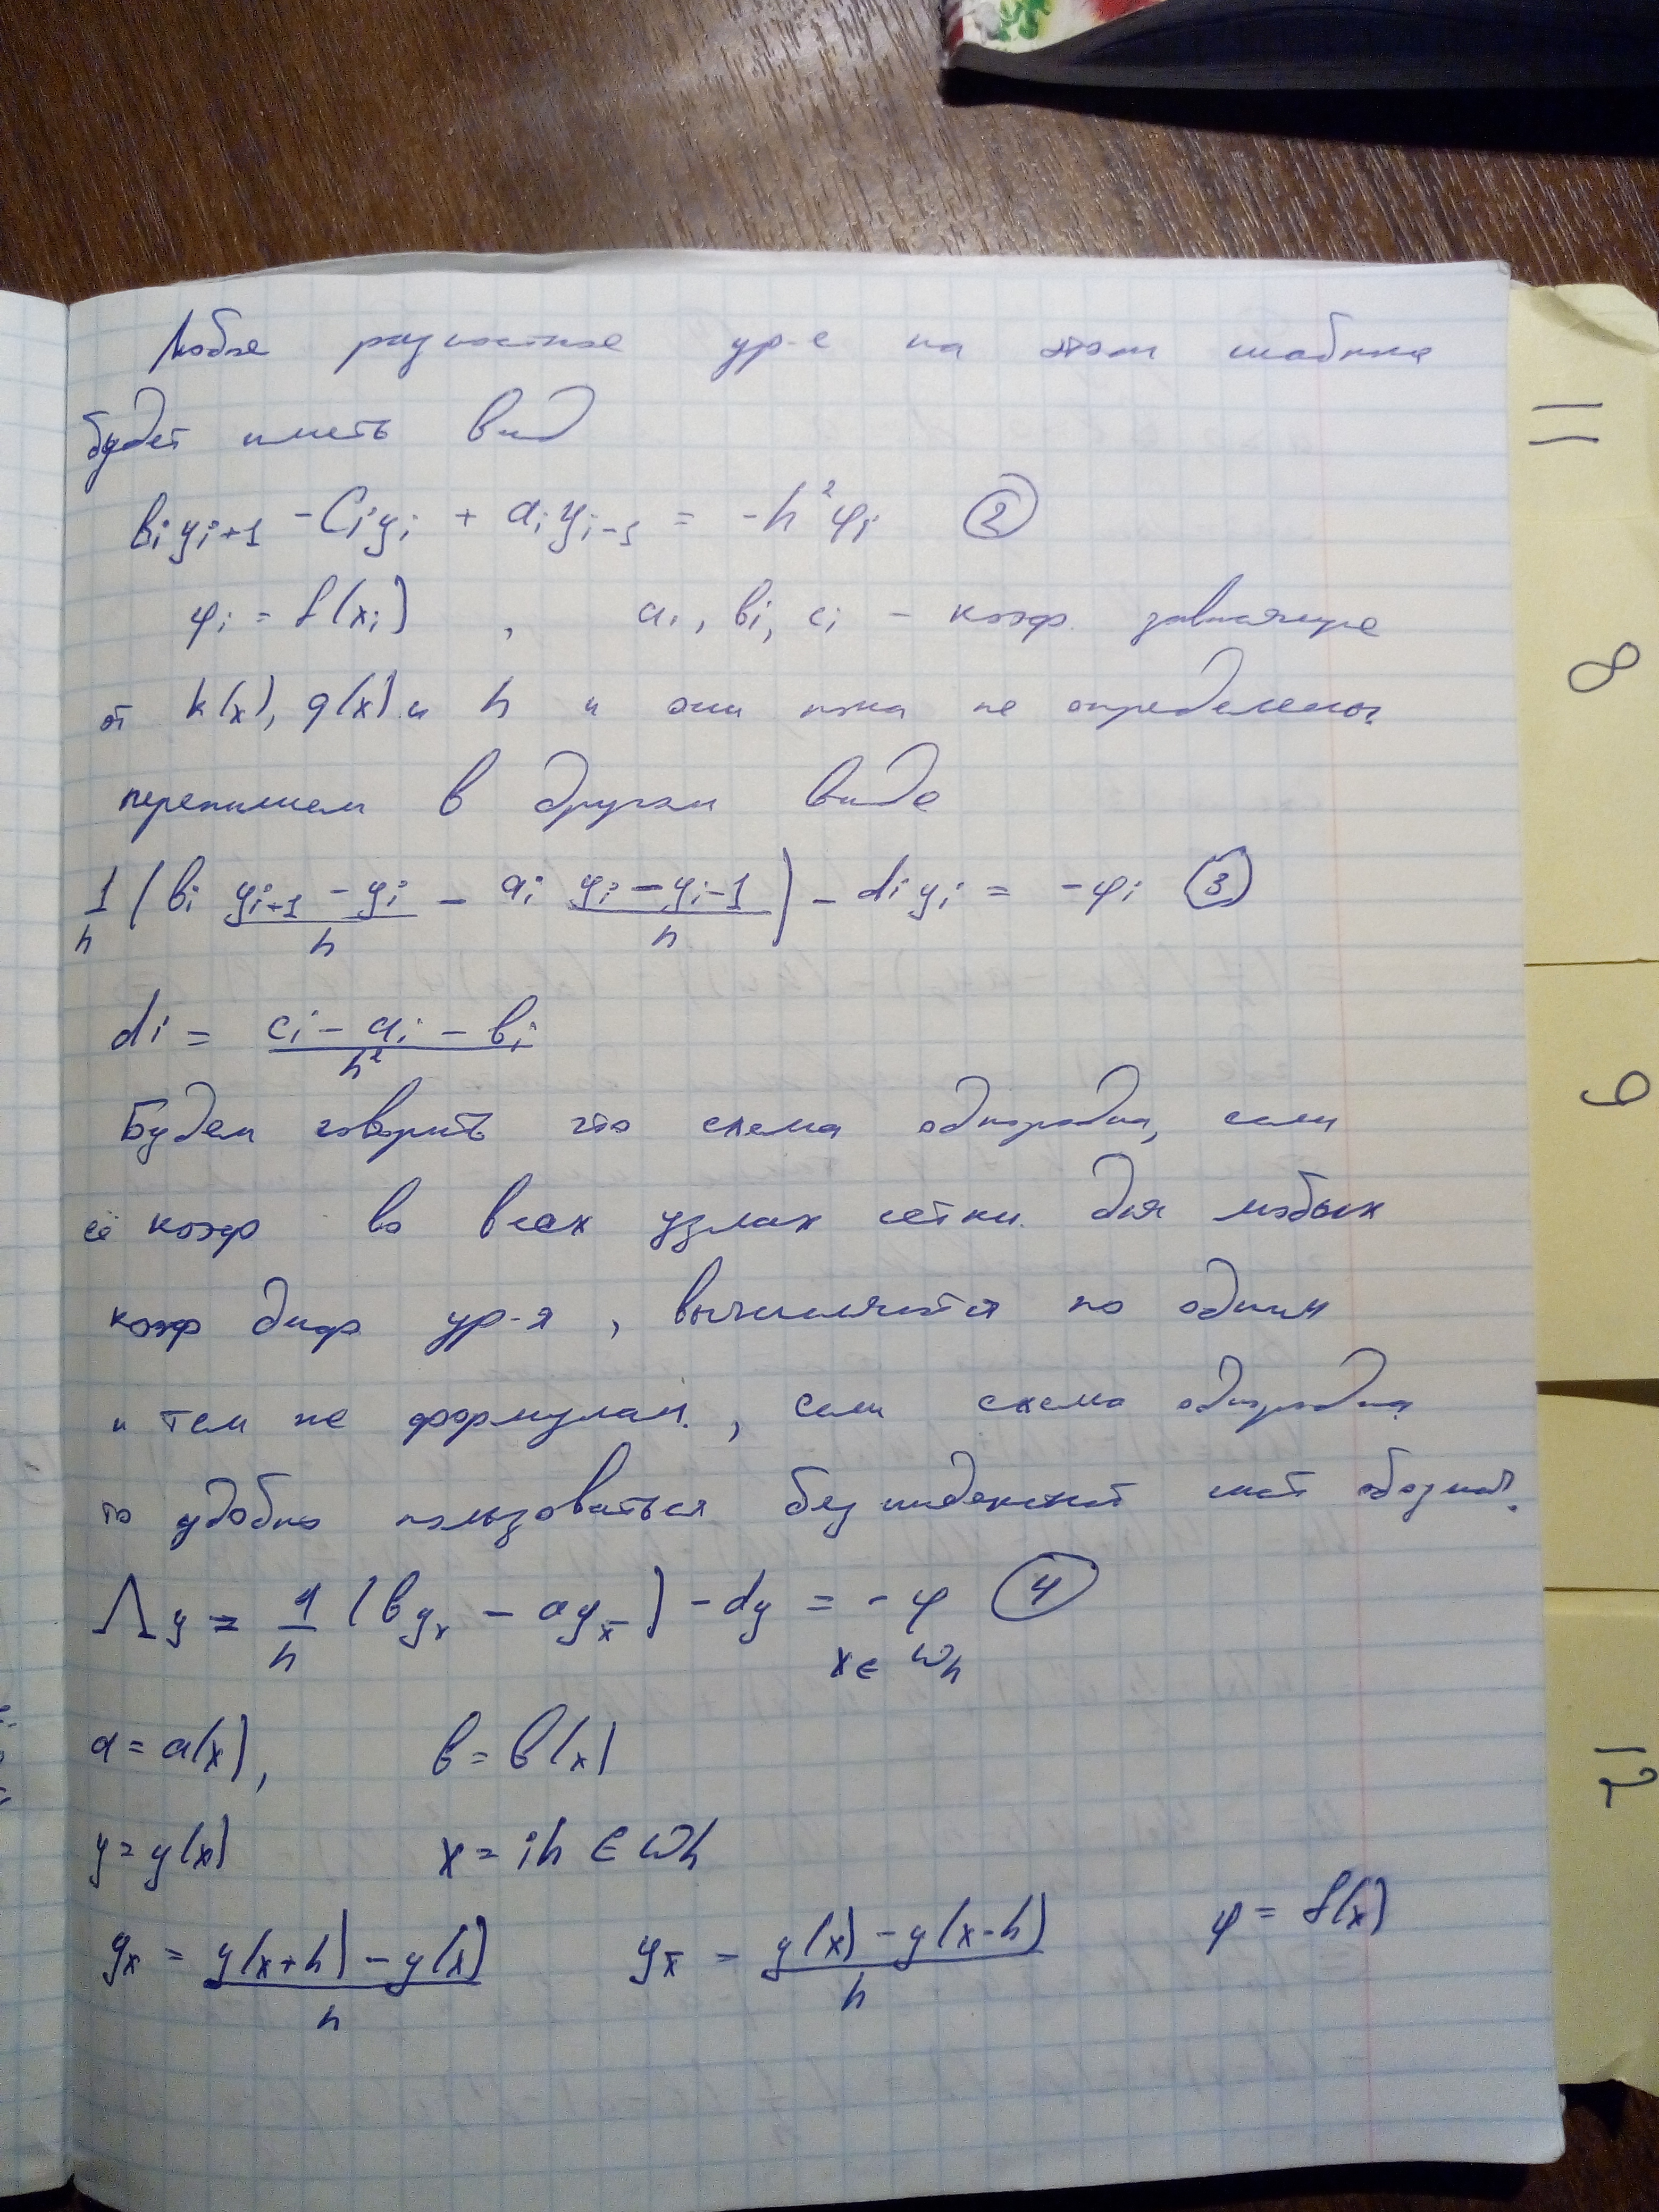 Любое разностное ур-е на этом шаблоне
будет иметь вид
bᵢyᵢ₊₁ - Cᵢyᵢ + aᵢyᵢ₋₁ = -h²φᵢ (2)
φᵢ = f(xᵢ) , aᵢ, bᵢ, cᵢ - коэф. зависящие
от k(x), q(x) и h и они пока не определены.
перепишем в другом виде
1/h (bᵢ (yᵢ₊₁ - yᵢ)/h - aᵢ (yᵢ - yᵢ₋₁)/h) - dᵢyᵢ = -φᵢ (3)
dᵢ = (cᵢ - aᵢ - bᵢ)/h²
Будем говорить что схема однородна, если
её коэф во всех узлах сетки для любых
коэф диф ур-я , вычисляются по одним
и тем же формулам. , если схема однородна
то удобно пользоваться без индексной сист обознач.
Λy = 1/h (by_x - ay_x̄) - dy = -φ (4)
x ∈ ω_h
a = a(x), b = b(x)
y = y(x) x = ih ∈ ω_h
y_x = (y(x+h) - y(x))/h y_x̄ = (y(x) - y(x-h))/h φ = f(x)
8
9
12